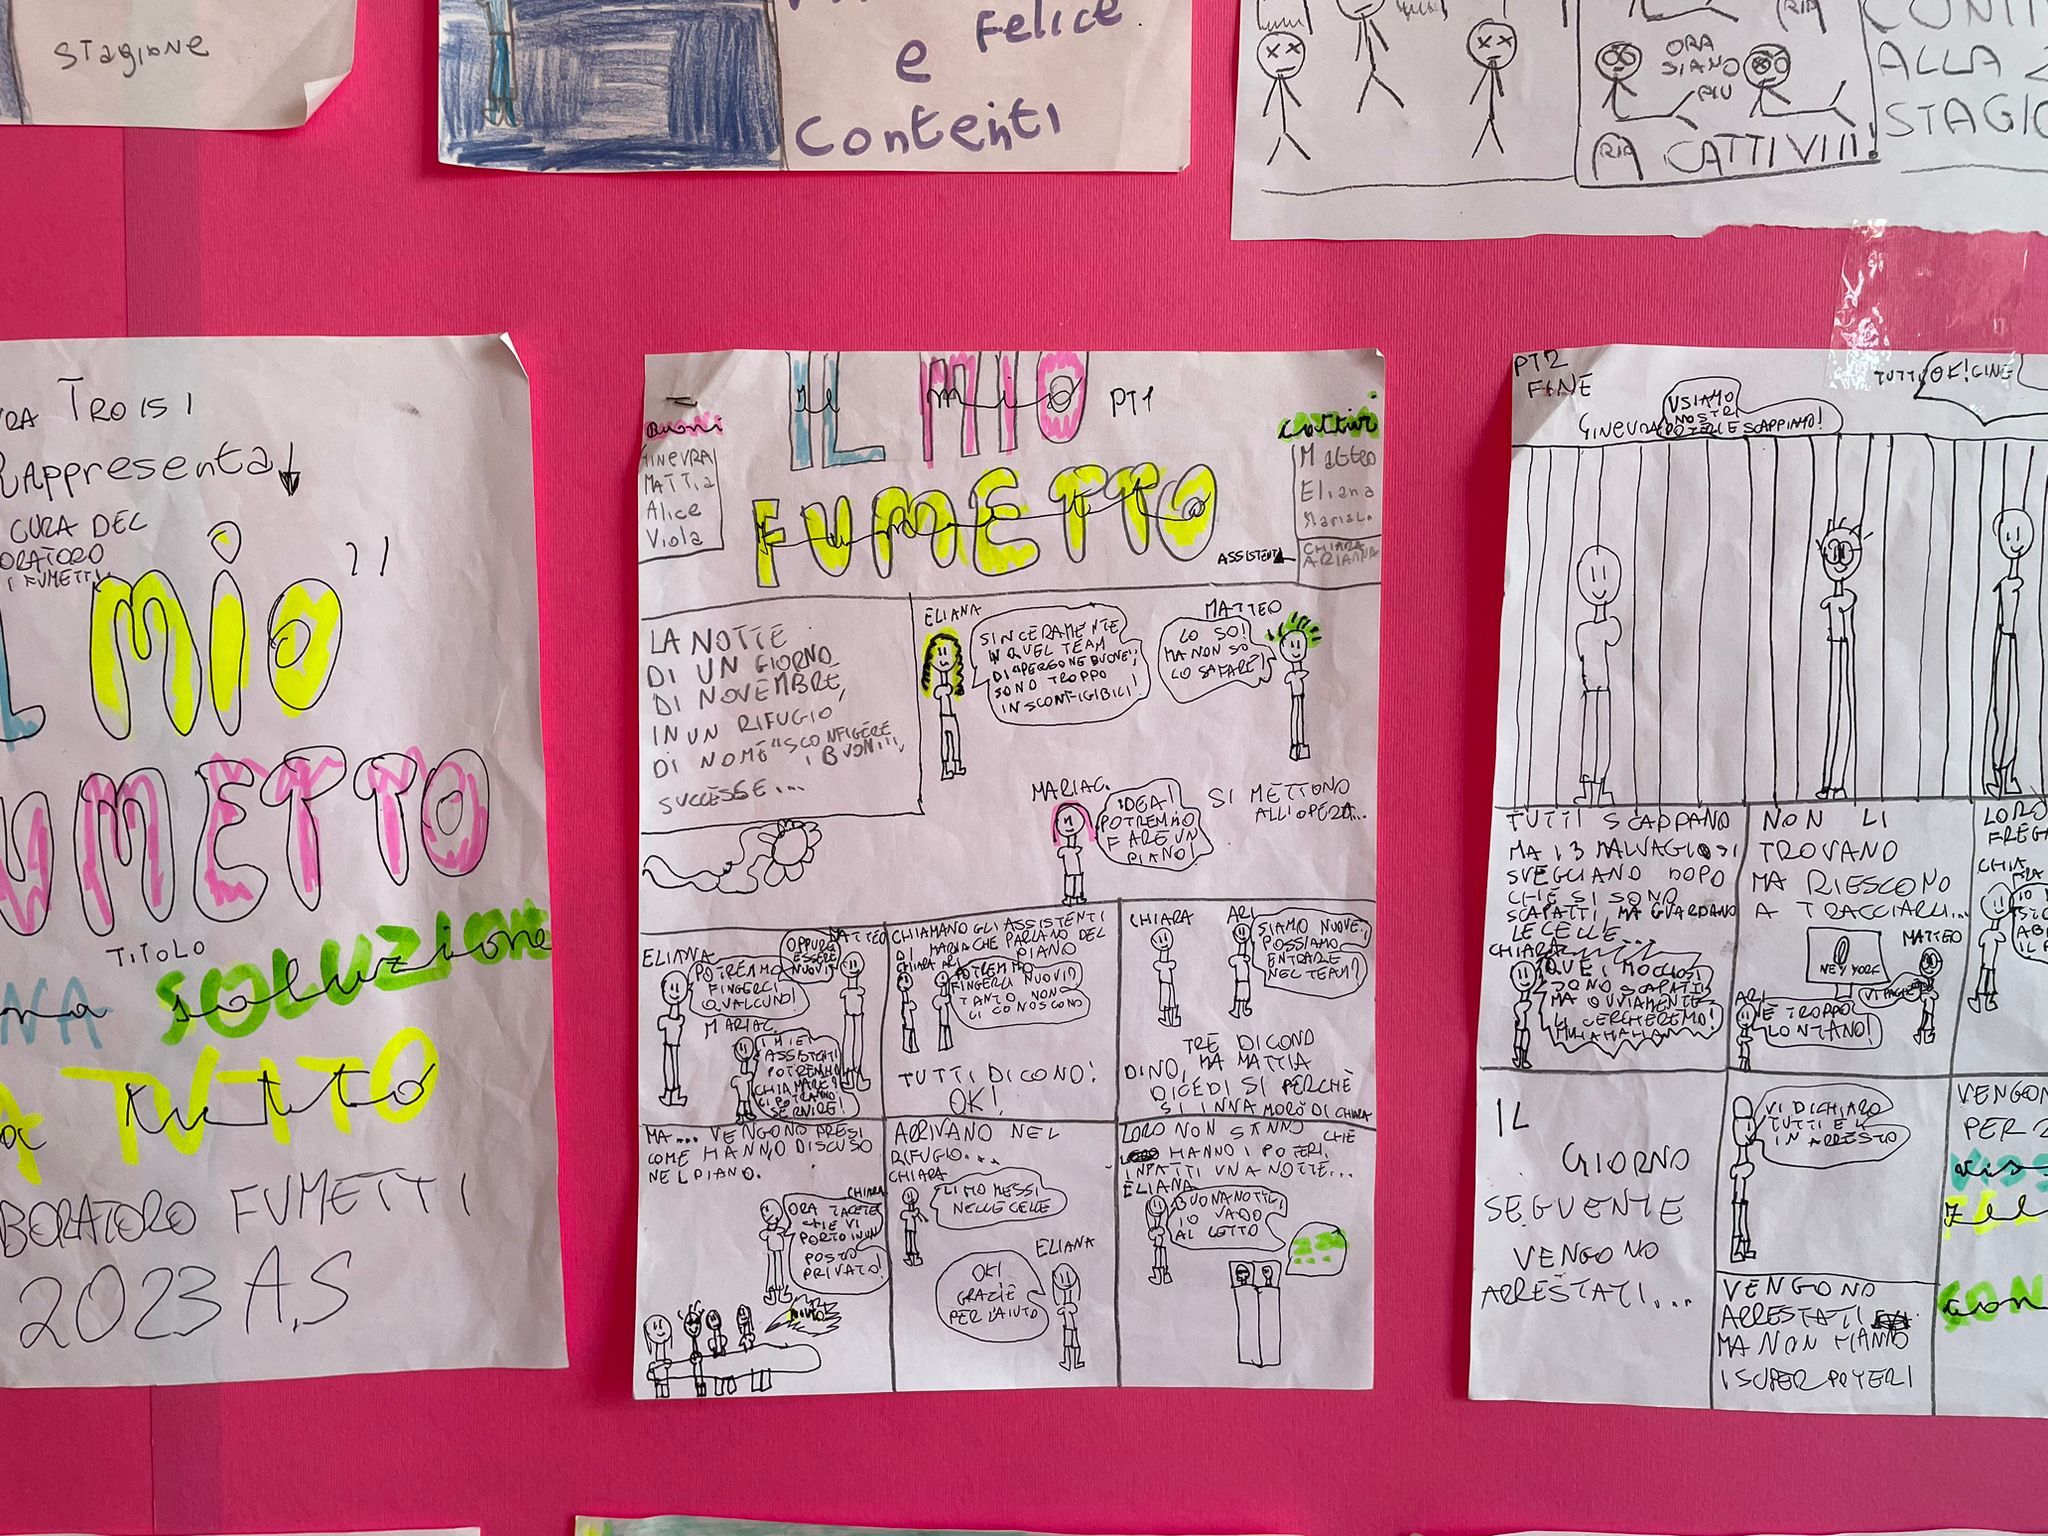 stagione
Felice
e
contenti
ORA
SIAMO
PIÙ
CATTIVI!!!
ALLA 2
TROISI
Rappresenta
CURA DEL
FUMETTI
MIO
TITOLO
SOLUZIONE
soluzione
TUTTO
tutto
FUMETTI
2023 A.S
IL MIO
il mio
PT1
FUMETTO
fumetto
Buoni
GINEVRA
MATTia
Alice
Viola
cattivi
Matteo
Eliana
ASSISTENTI
CHIARA
ARIANNA
LA NOTTE
DI UN GIORNO
DI NOVEMBRE,
IN UN RIFUGIO,
DI NOME "SCONFIGERE
I BUONI",
SUCCESSE...
ELIANA
SINCERAMENTE
IN QUEL TEAM
DI "PERSONE BUONE",
SONO TROPPO
INSCONFIGIBILI!
MATTEO
LO SO!
MA NON SO
MARIAC.
IDEA!
POTREMMO
FARE UN
PIANO!
SI METTONO
ALL'OPERA...
ELIANA
POTREMMO
FINGERCI
QUALCUNO!
OPPURE
ESSERE
NUOVI?
MATTEO
MARIAC.
I MIEI
ASSISTENTI
POTREMMO
CHIAMARE?
CI POTRANNO
SERVIRE!
CHIAMANO GLI ASSISTENTI
DI MARIA CHE PARLANO DEL
PIANO
CHIARA ARI
POTREMMO
FINGERCI NUOVI?
TANTO NON
CI CONOSCONO
TUTTI DICONO!
OK!
CHIARA
ARI
SIAMO NUOVE!
POSSIAMO
ENTRARE
NEL TEAM?
TRE DICONO
DINO, MA MATTIA
DICE DI SI PERCHÈ
SI INNAMORÒ DI CHIARA
MA... VENGONO PRESI
COME HANNO DISCUSO
NEL PIANO.
CHIARA
ORA TACETE
CHE VI
PORTO IN UN
POSTO
PRIVATO!
ARRIVANO NEL
RIFUGIO...
CHIARA
LI HO MESSI
NELLE CELLE
ELIANA
OKI
GRAZIE
PER L'AIUTO
LORO NON SANNO CHE
HANNO I POTERI.
INFATTI UNA NOTTE...
ELIANA
IO VADO
AL LETTO
PT2
FINE
GINEVRA
USIAMO
I NOSTRI
POTERI E SCAPPIAMO!
TUTTI OK!
TUTTI SCAPPANO
MA I 3 MALVAGI SI
SVEGLIANO DOPO
CHE SI SONO
SCAPATTI, MA GUARDANO
LE CELLE...
CHIARA
QUEI MOCIOSI
SONO SCAPATI!
MA OVVIAMENTE
LI CERCHEREMO!
NON LI
TROVANO
MA RIESCONO
A TRACCIARLI...
NEW YORK
MATTEO
ARI
È TROPPO
LONTANO!
LORO
IL
GIORNO
SEGUENTE
VENGONO
ARRESTATI...
VI DICHIARO
TUTTI E 4
IN ARRESTO
VENGONO
ARRESTATI
MA NON HANNO
I SUPER POTERI
PER 2